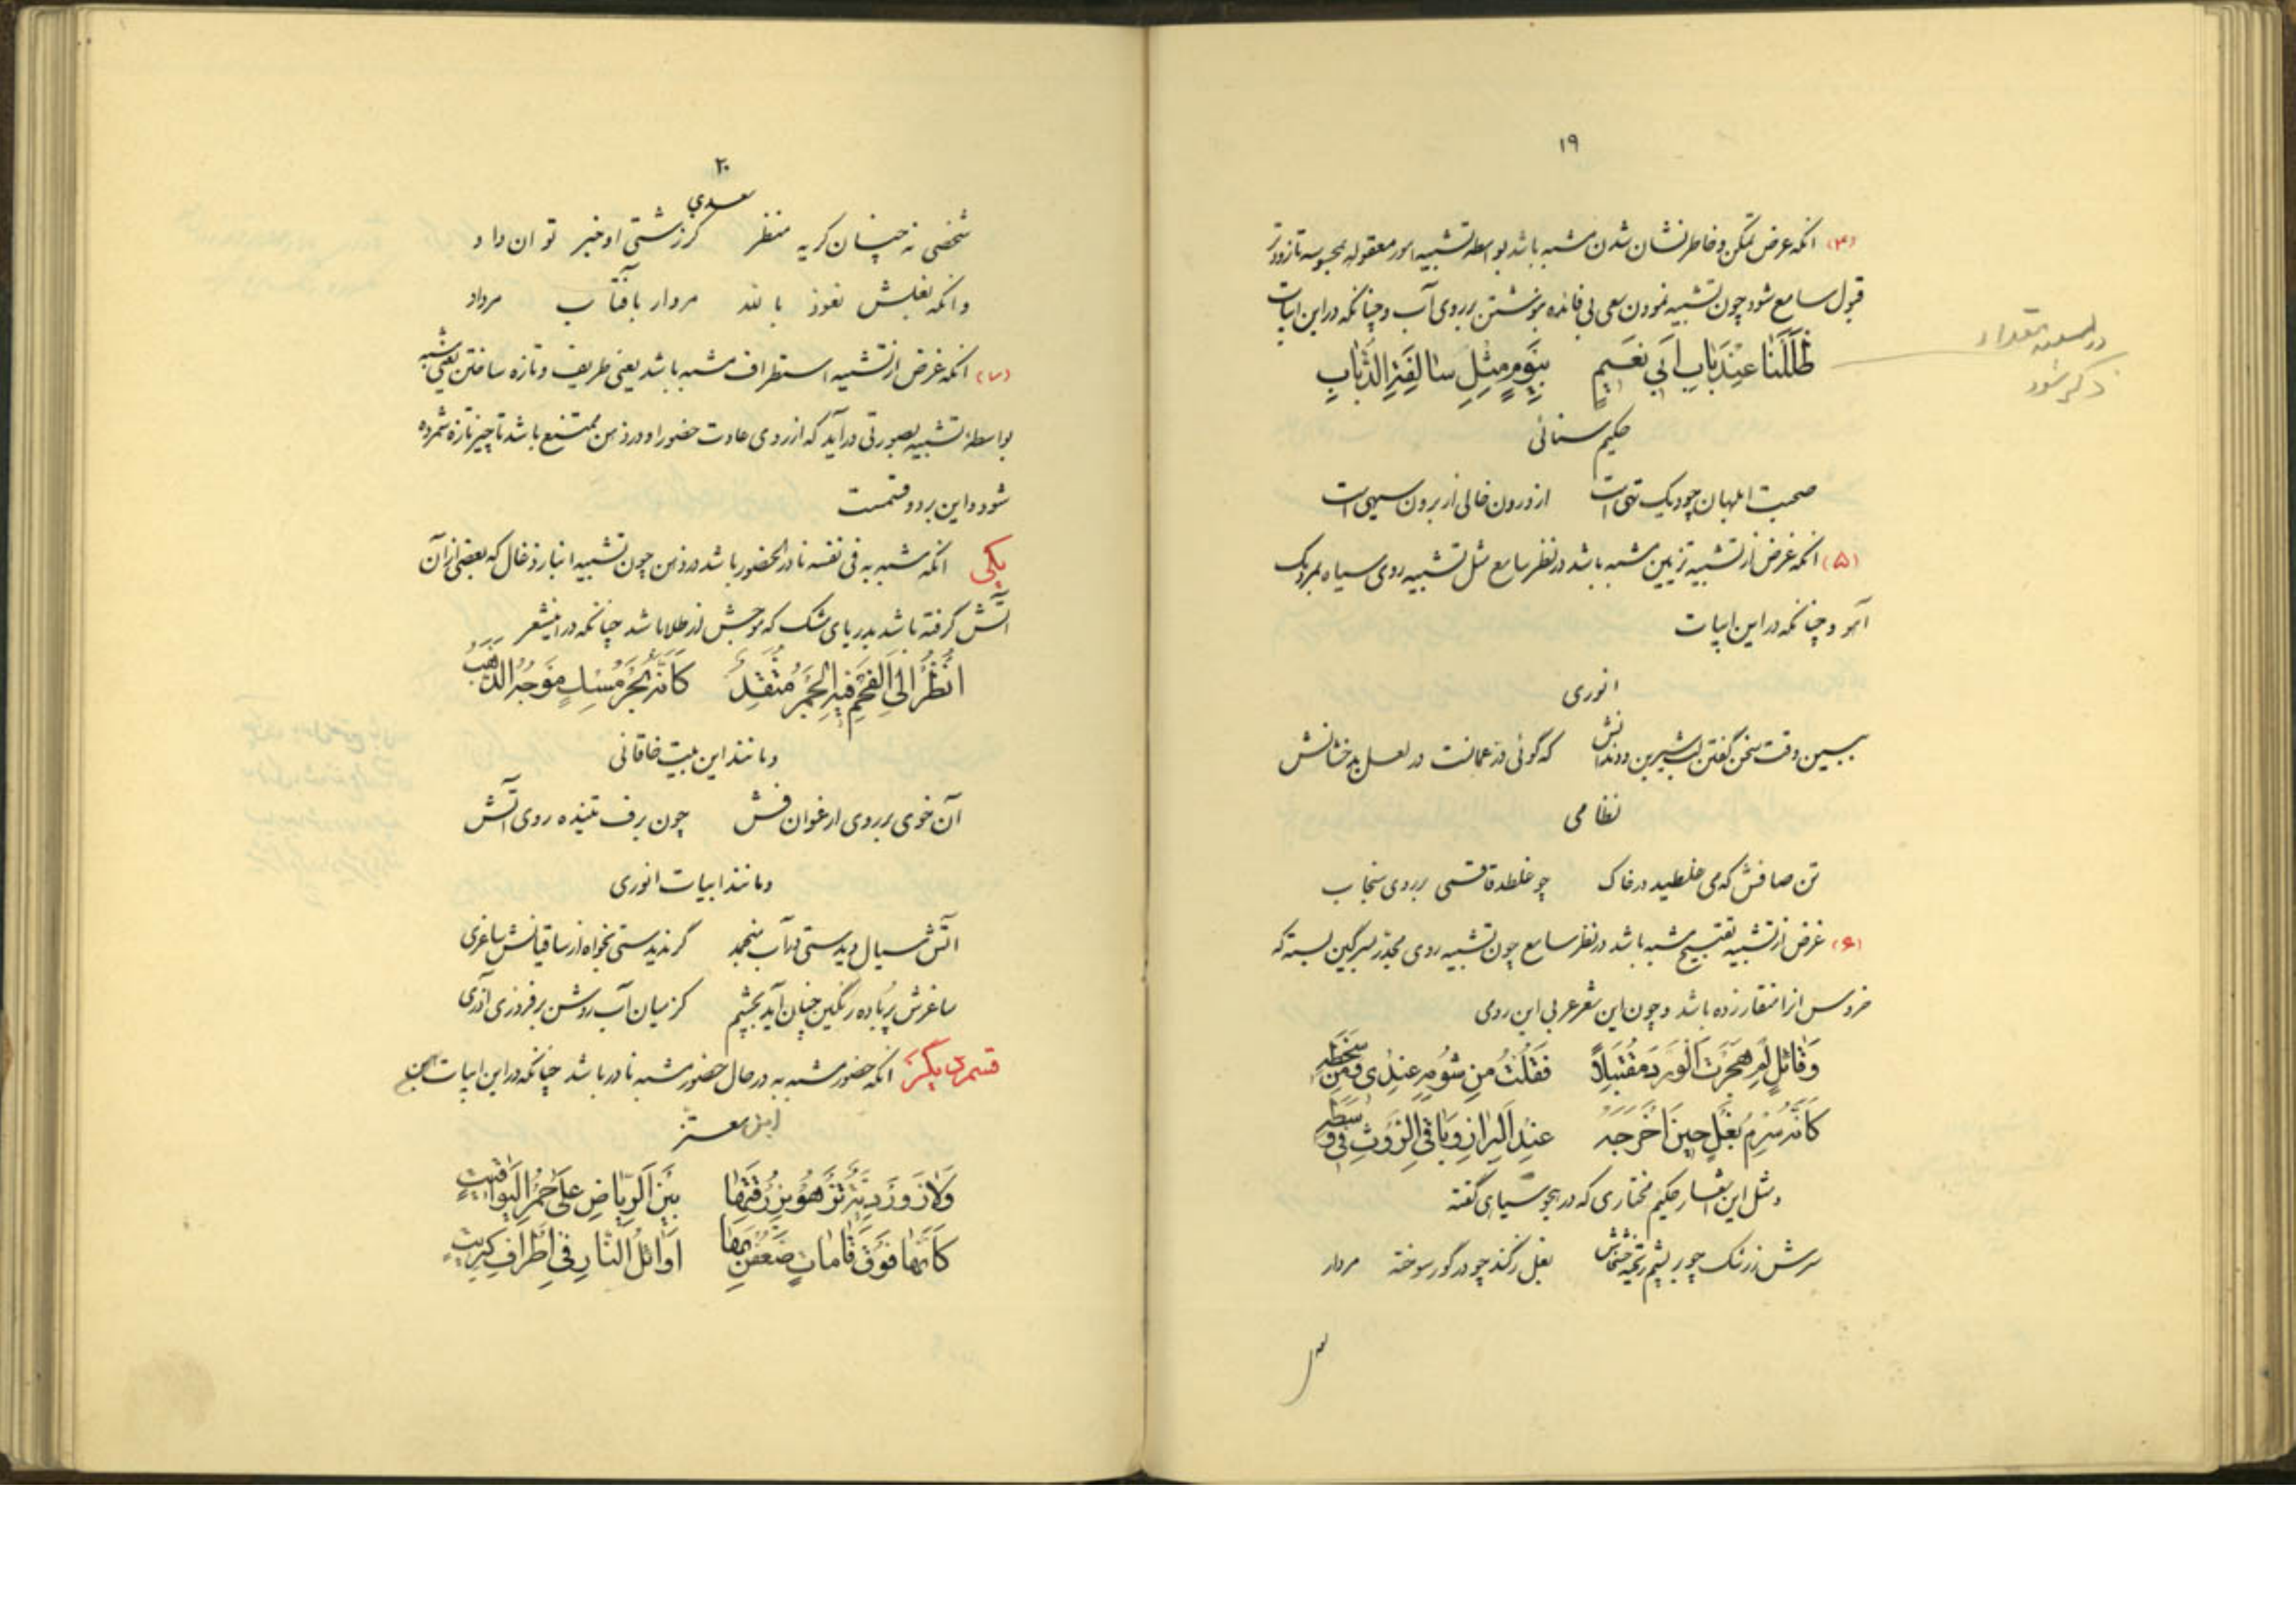 ۱۹
(۴) آنکه غرض تمکن و خاطر نشان شدن مشبه باشد بواسطه تشبیه امور معقوله بمحسوسه تا زودتر
قبول سامع شود چون تشبیه نمودن سعی بی فائده بنوشتن بر روی آب و چنانکه در این ابیات
ظَلَلْنا عِنْدَ بابِ اَبی نَعیمٍ بِیَوْمٍ مِثْلِ سالِفَةِ الذُّبابِ
ذکر شود
حکیم سنائی
صحبت ابلهان چو دیک تهی است از درون خالی از برون سیهی است
(۵) آنکه غرض از تشبیه تزیین مشبه باشد در نظر سامع مثل تشبیه روی سیاه بمردمک
آهو و چنانکه در این ابیات
انوری
ببین وقت سخن گفتن لب شیرین و دندانش که گوئی در عمانست در لعل بدخشانش
نظامی
تن صافش که می غلطید در خاک چو غلطد قاقمی بر روی سنجاب
(۶) غرض از تشبیه تقبیح مشبه باشد در نظر سامع چون تشبیه روی مجدر بسرگین بسته که
خروس آنرا منقار زده باشد و چون این شعر عربی ابن رومی
وَقائِلٍ لِمَ هَجَرْتَ الْوَرْدَ مُقْتَبِلاً فَقُلْتُ مِنْ شُومِهِ عِنْدی وَمِنْ سَخَطِهِ
کَاَنَّهُ سُرْمُ بَغْلٍ حینَ اَخْرَجَهُ عِنْدَ الْبِرازِ وَباقِی الرَّوْثِ فی وَسَطِهِ
و مثل این اشعار حکیم مختاری که در هجو سیاهی گفته
سرش ز رشک چو بر پشم ریخته خشخاش بغل ز گند چو در گور سوخته مردار
۲۰
سعدی
شخصی نه چنان کریه منظر کز زشتی او خبر توان داد
وانکه بغلش نعوذ بالله مردار بآفتاب مرداد
(۷) آنکه غرض از تشبیه استطراف مشبه باشد یعنی طریف و تازه ساختن یعنی مشبه
بواسطه تشبیه بصورتی درآید که از روی عادت حضور او در ذهن ممتنع باشد تا چیز تازه شمرده
شود و این بر دو قسمست
یکی آنکه مشبه به فی نفسه نادر الحضور باشد در ذهن چون تشبیه انبار زغال که بعضی از آن
آتش گرفته باشد بدریای مشک که موجش از طلا باشد چنانکه در اینشعر
اُنْظُرْ اِلَی الْفَحْمِ فیهِ الْجَمْرُ مُتَّقِدٌ کَاَنَّهُ بَحْرُ مِسْكٍ مَوْجُهُ الذَّهَبُ
و مانند این بیت خاقانی
آن خوی بر روی ارغوان فش چون برف تنیده روی آتش
و مانند ابیات انوری
آتش سیال دیدستی در آب منجمد گر ندیدستی بخواه از ساقیانش ساغری
ساغرش پر باده رنگین چنان آید بچشم کز میان آب روشن برفروزی آذری
قسم دیگر آنکه حضور مشبه به در حال حضور مشبه نادر باشد چنانکه در این ابیات
ابن معتز
وَلازَوَرْدِیَّةٍ تَزْهُو بِزُرْقَتِها بَیْنَ الرِّیاضِ عَلی حُمْرِ الْیَواقیتِ
کَاَنَّها فَوْقَ قاماتٍ ضَعُفْنَ بِها اَوائِلُ النّارِ فی اَطْرافِ کِبْریتِ